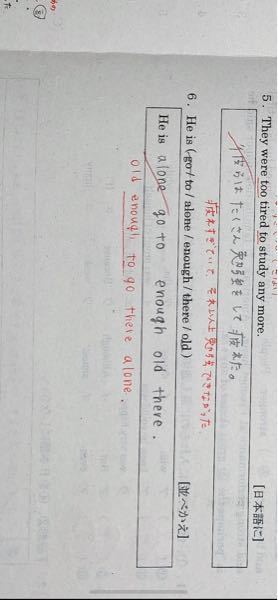 5. They were too tired to study any more.
[日本語に]
彼らは たくさん勉強をして疲れた。
疲れすぎていて、それ以上勉強できなかった
6. He is (go / to / alone / enough / there / old)
[並べかえ]
He is alone go to enough old there.
old enough to go there alone.